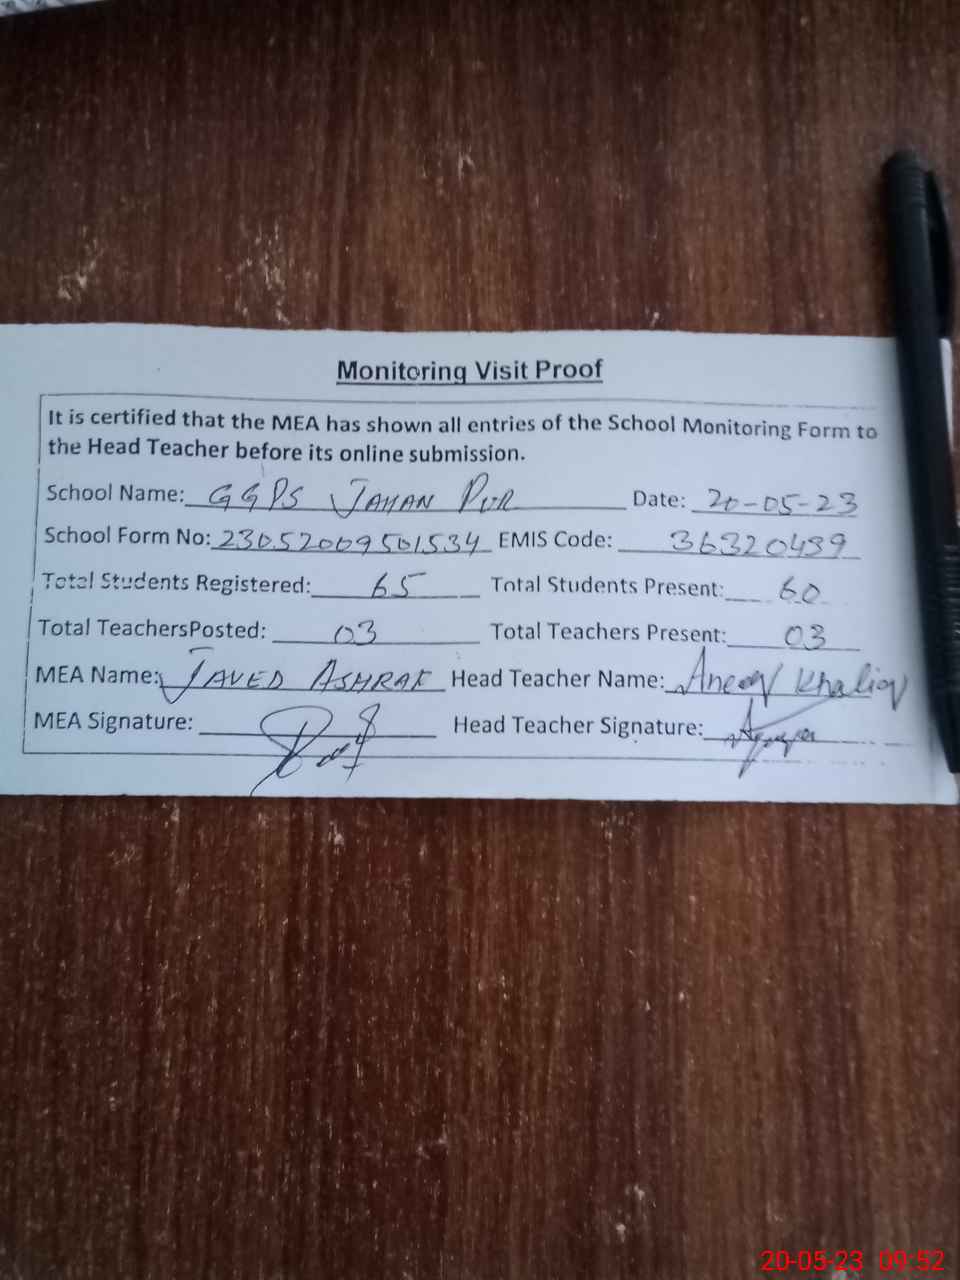 Monitoring Visit Proof
It is certified that the MEA has shown all entries of the School Monitoring Form to
the Head Teacher before its online submission.
School Name: GGPS JAHAN PUR Date: 20-05-23
School Form No: 23052009501534 EMIS Code: 36320489
Total Students Registered: 65 Total Students Present: 60
Total TeachersPosted: 03 Total Teachers Present: 03
MEA Name: JAVED ASHRAF Head Teacher Name: Khaliq
MEA Signature: Head Teacher Signature:
20-05-23 09:52